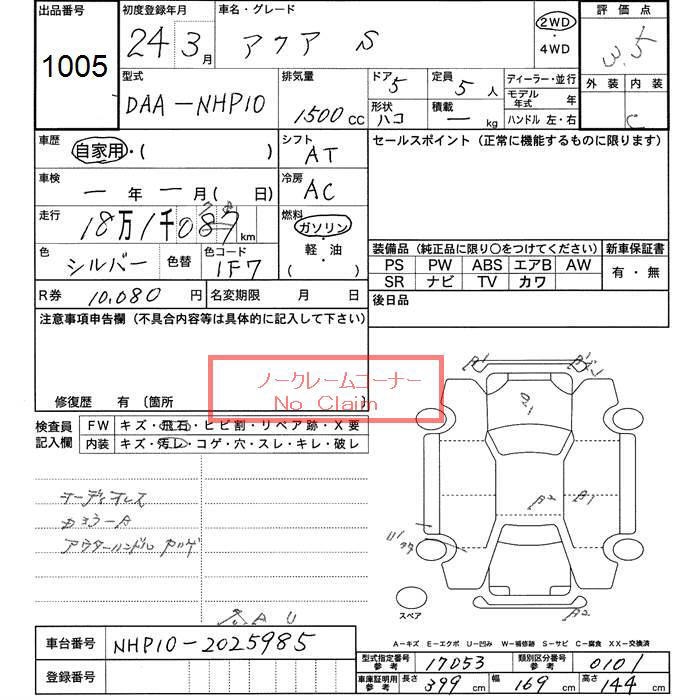 出品番号
1005
初度登録年月
24 3月
車名・グレード
アクア S
2WD
・4WD
評価点
3.5
外装 内装
C
型式
DAA-NHP10
排気量
1500 CC
ドア 5
定員 5 人
形状 ハコ
積載 ー kg
ディーラー・並行
モデル年式 年
ハンドル 左・右
車歴
自家用・( )
シフト
AT
セールスポイント(正常に機能するものに限ります)
車検
ー年ー月( 日)
冷房
AC
走行
18万1千087 km
燃料
ガソリン
・
軽・油
( )
色
シルバー
色替
色コード
1F7
装備品(純正品に限り○をつけてください)
PS PW ABS エアB AW
SR ナビ TV カワ
新車保証書
有・無
R券 10,080 円
名変期限 月 日
後日品
注意事項申告欄(不具合内容等は具体的に記入して下さい)
ノークレームコーナー
No Claim
修復歴 有(箇所
検査員記入欄
FW キズ・飛石・ヒビ割・リペア跡・X要
内装 キズ・汚レ・コゲ・穴・スレ・キレ・破レ
オーディオレス
アウターハンドル
スペア
A−キズ E−エクボ U−凹み W−補修跡 S−サビ C−腐食 XX−交換済
車台番号 NHP10-2025985
登録番号
型式指定番号参考 17053
類別区分番号参考 0101
車庫証明用参考 長さ 399 cm 幅 169 cm 高さ 144 cm